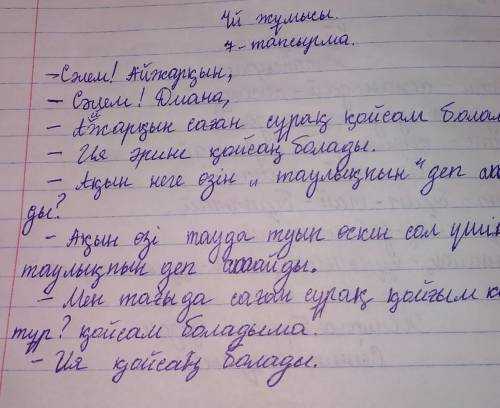 Үй жұмысы.
7-тапсырма.
-Сәлем! Айжарқын,
- Сәлем! Диана,
- Айжарқын саған сұрақ қойсам болал
- Ия әрине қойсаң болады.
- Ақын неге өзін „ таулықпын " деп
ды?
- Ақын өзі тауда туып өскен сол үшін
таулықпын деп айды.
- Мен тағыда саған сұрақ қойғым к
тұр? қойсам боладыма.
- Ия қойсаң болады.